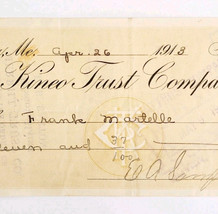 Me. Apr. 26 1913
Kineo Trust Compa
Frank Martelle
leven and 37
100
E A